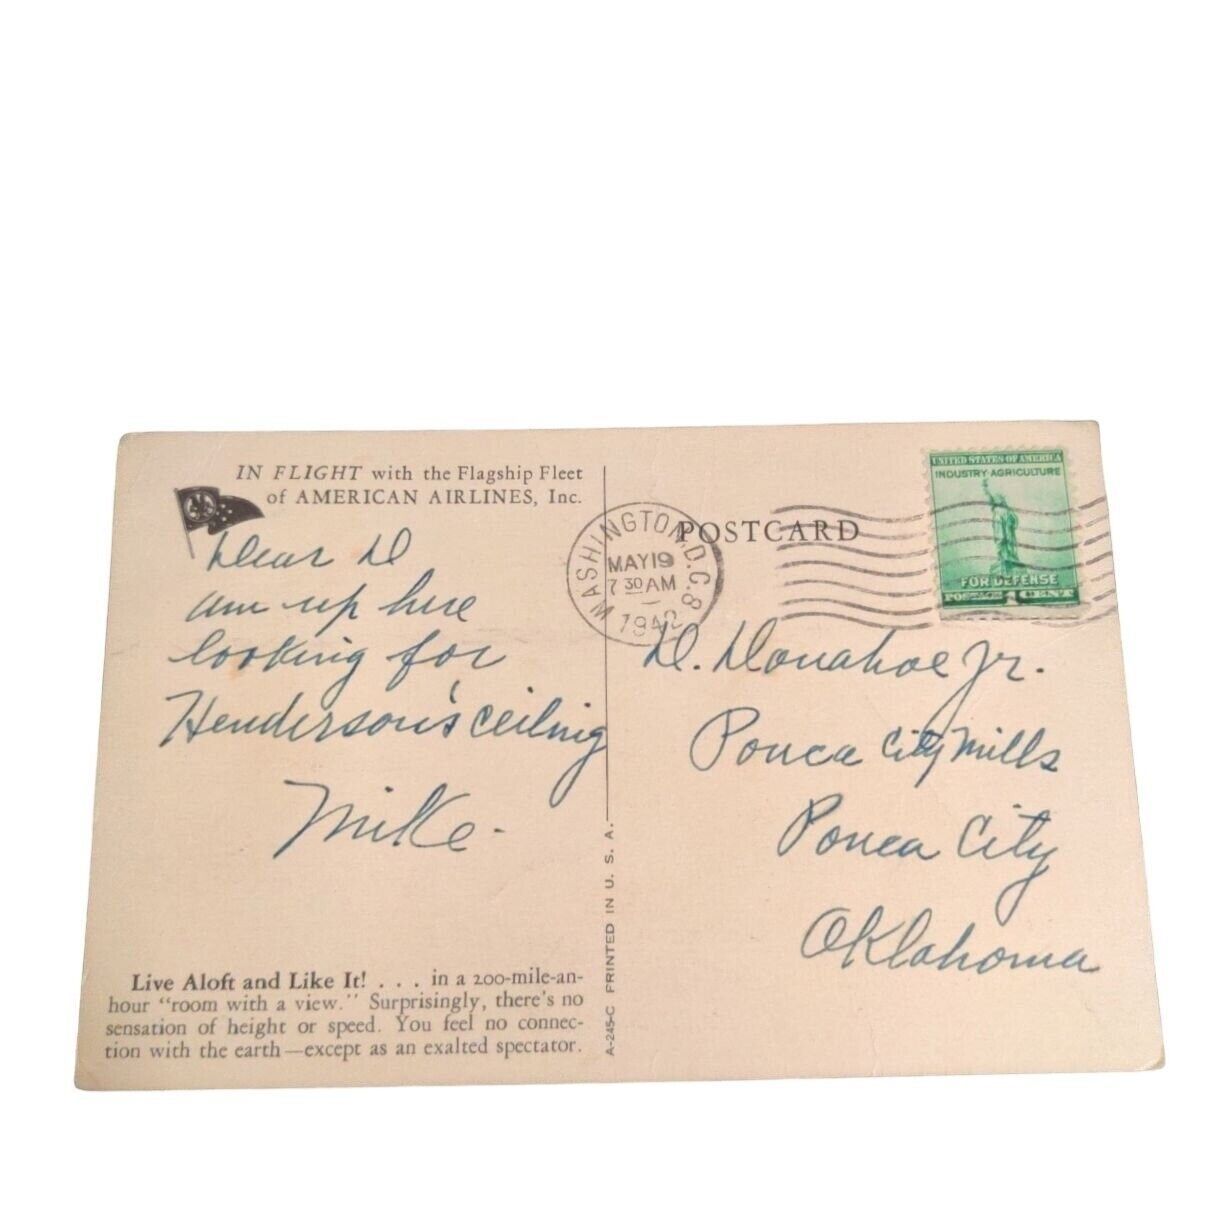 IN FLIGHT with the Flagship Fleet
of AMERICAN AIRLINES, Inc.
Dear D
am up here
looking for
Henderson's ceiling
Mike -
Live Aloft and Like It! . . . in a 200-mile-an-
hour "room with a view." Surprisingly, there's no
sensation of height or speed. You feel no connec-
tion with the earth—except as an exalted spectator.
A-245-C PRINTED IN U. S. A.
POSTCARD
WASHINGTON, D.C. 8
MAY 19
7 30 AM
1942
UNITED STATES OF AMERICA
INDUSTRY AGRICULTURE
FOR DEFENSE
POSTAGE 1 CENT
D. Donahoe Jr.
Ponca City Mills
Ponca City
Oklahoma